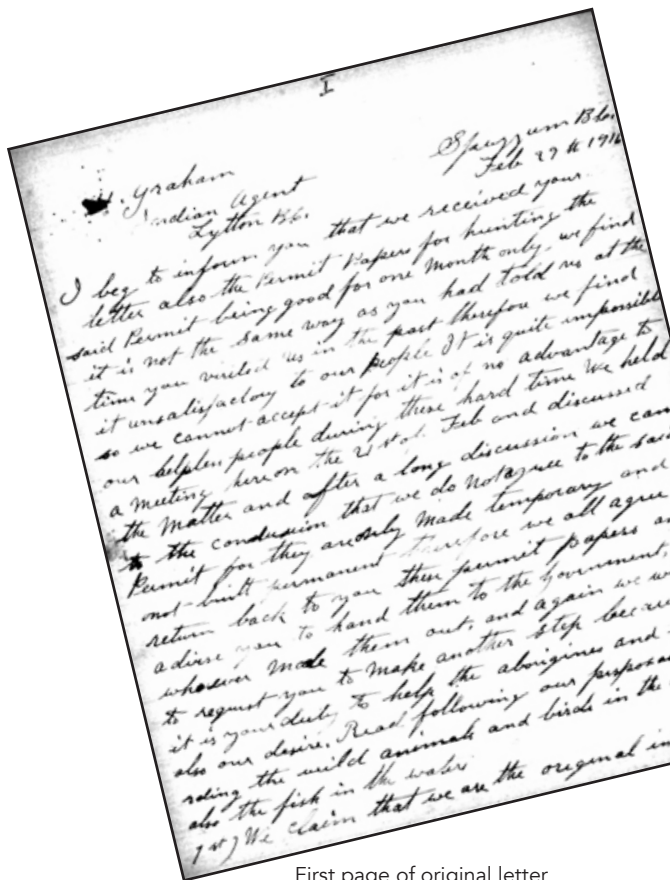 I
Spuzzum B.C.
Feb 29th 1916
H. Graham
Indian Agent
Lytton B.C.
I beg to inform you that we received your
letter also the Permit Papers for hunting the
said Permit being good for one Month only. we find
it is not the same way as you had told us at the
time you visited us in the past therefore we find
it unsatisfactory to our people It is quite impossible
so we cannot accept it for it is of no advantage to
our helpless people during these hard time We held
a meeting here on the 21st of Feb and discussed
the Matter and after a long discussion we cam
to the conclusion that we do not agree to the said
Permit for they are only made temporary and
not built permanent therefore we all agree
return back to you these permit papers a
advise you to hand them to the Government,
whoever made them out, and again we w
to request you to make another step becau
it is your duty to help the aborigines and
also our desire. Read following our proposa
rding the wild animals and birds in the
also the fish in the waters
1st) We claim that we are the original in
First page of original letter